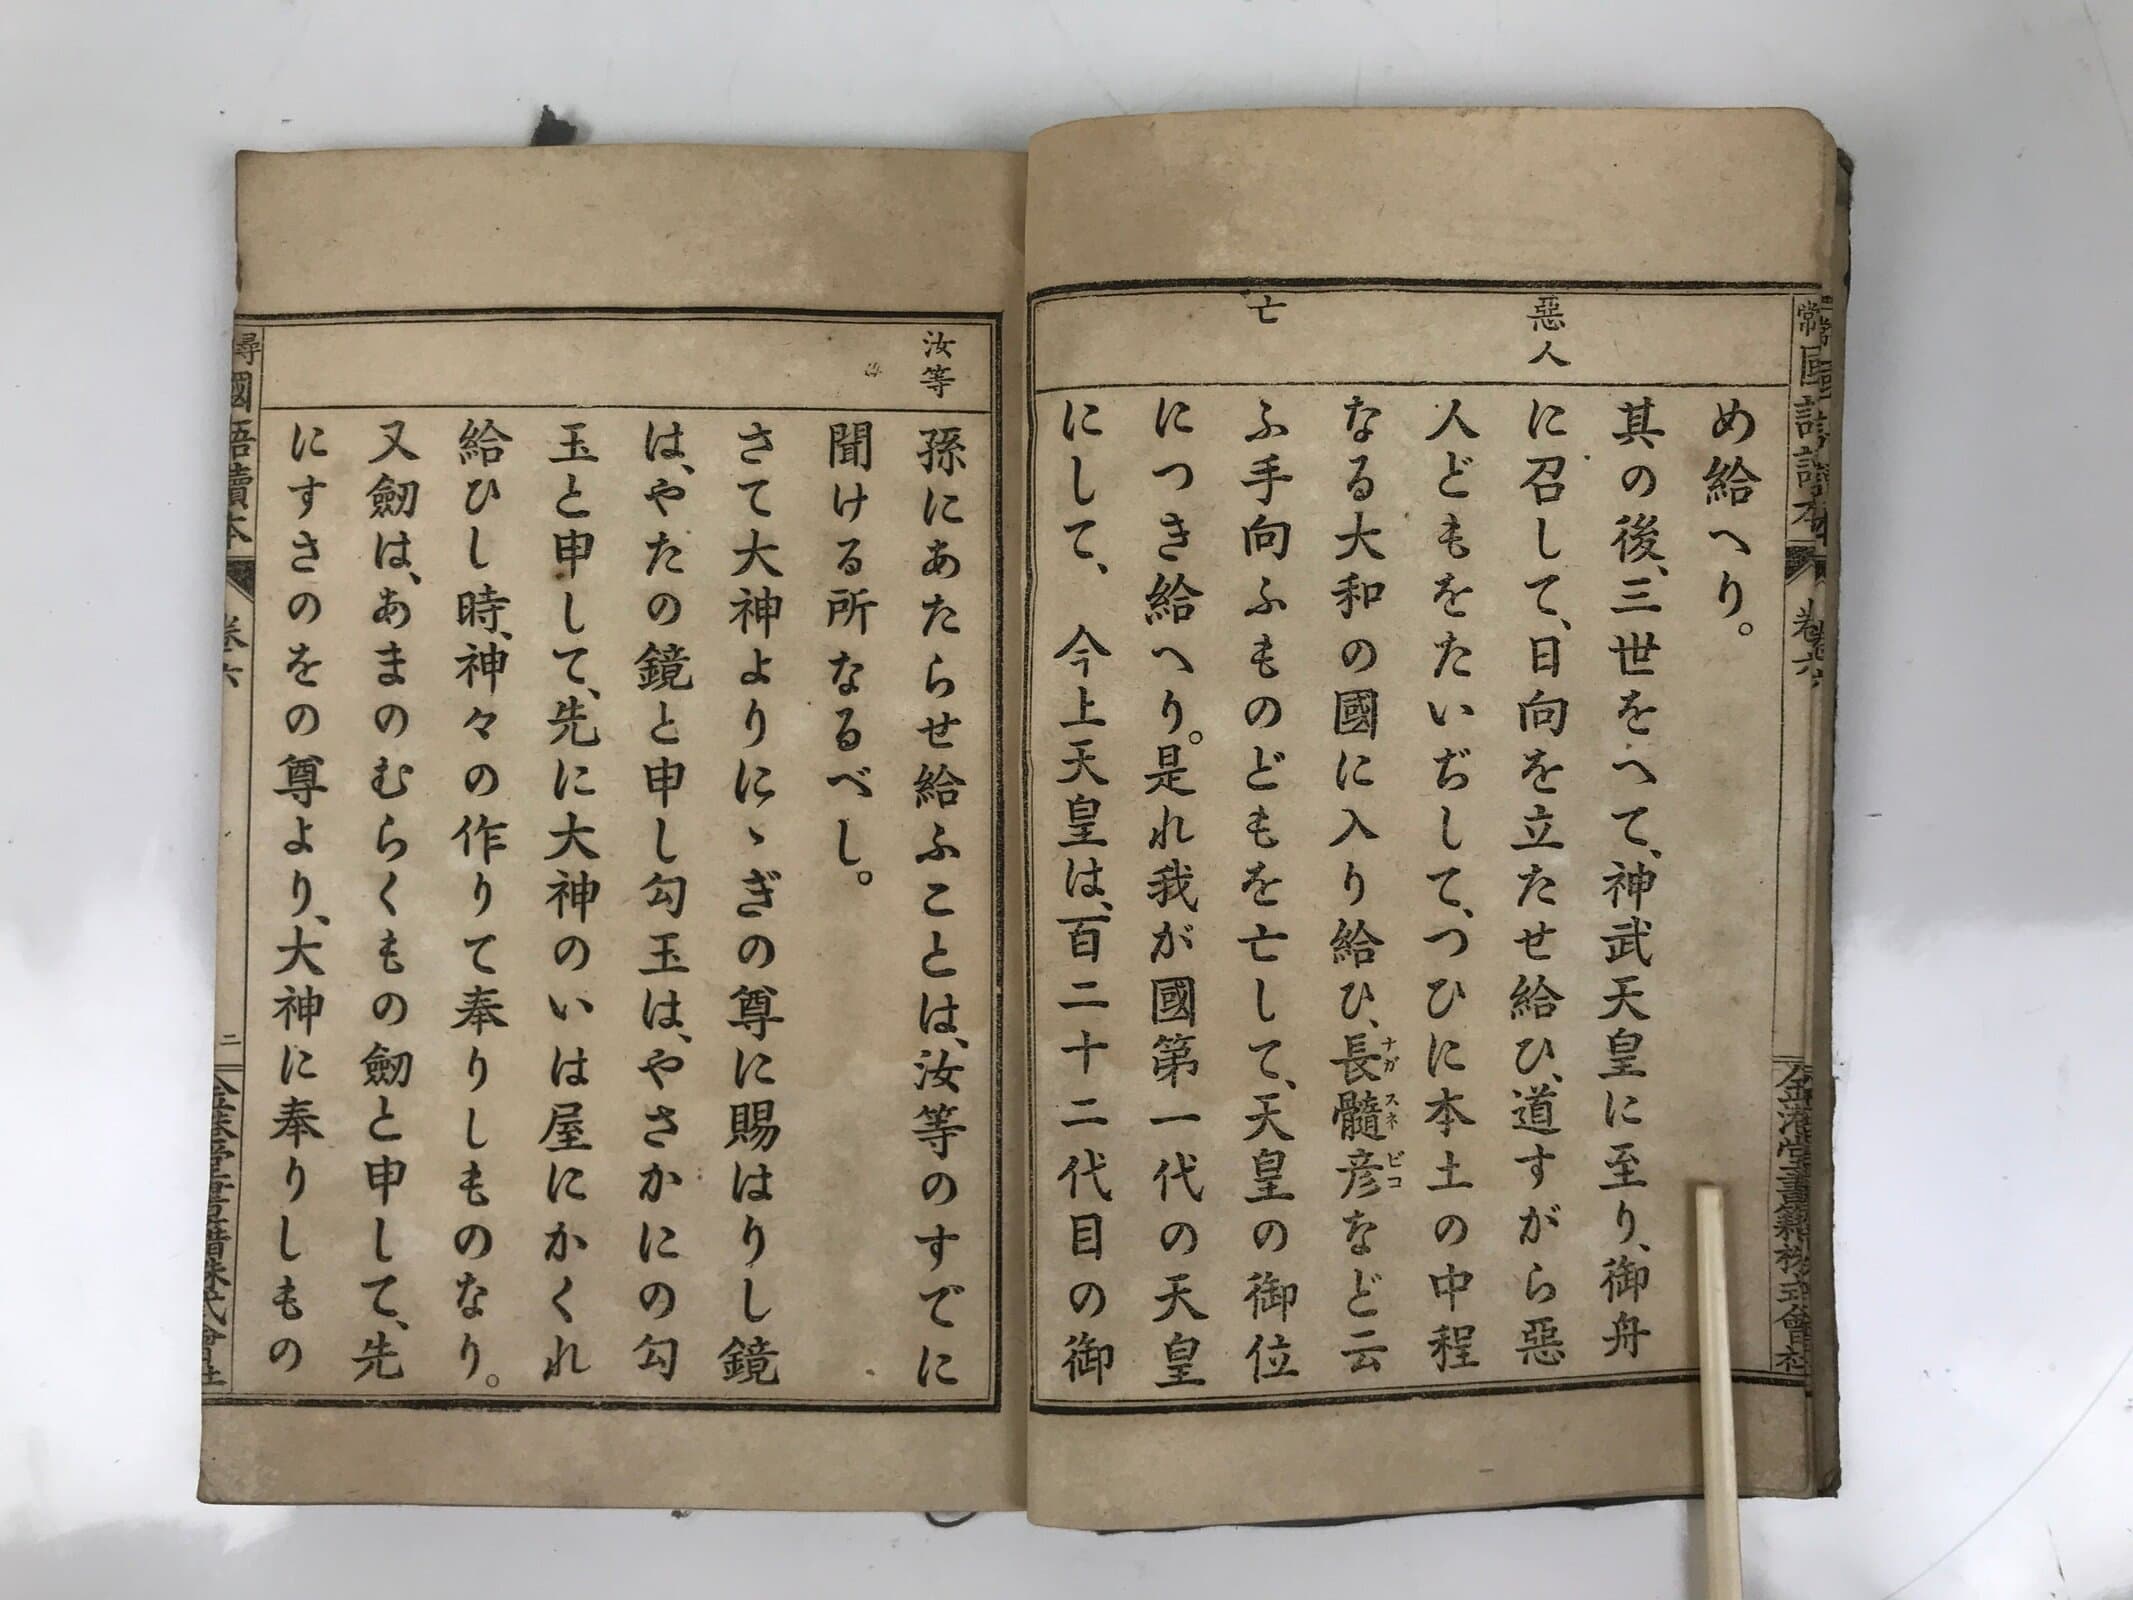 惡人
亡
め給へり。
其の後、三世をへて、神武天皇に至り、御舟
に召して、日向を立たせ給ひ、道すがら惡
人どもをたいぢして、つひに本土の中程
なる大和の國に入り給ひ、長髓彦など云
ナガスネビコ
ふ手向ふものどもを亡して、天皇の御位
につき給へり。是れ我が國第一代の天皇
にして、今上天皇は、百二十二代目の御
汝等
孫にあたらせ給ふことは、汝等のすでに
聞ける所なるべし。
さて大神よりにゝぎの尊に賜はりし鏡
は、やたの鏡と申し勾玉は、やさかにの勾
玉と申して、先に大神のいは屋にかくれ
給ひし時、神々の作りて奉りしものなり。
又劒は、あまのむらくもの劒と申して、先
にすさのをの尊より、大神に奉りしもの
尋 國語讀本
卷六
二